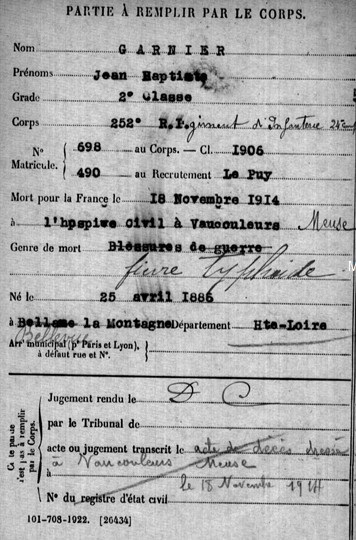 PARTIE À REMPLIR PAR LE CORPS.
Nom GARNIER
Prénoms Jean Baptiste
Grade 2e Classe
Corps 252e R.Régiment d'Infanterie
N° Matricule. 698 au Corps. — Cl. 1906
490 au Recrutement Le Puy
Mort pour la France le 18 Novembre 1914
à l'hpspive Civil à Vaucouleurs Meuse
Genre de mort Bléssures de guerre
fièvre typhoïde
Né le 25 avril 1886
à Bellome la Montagne Département Hte-Loire
Arrt municipal (pr Paris et Lyon), à défaut rue et N°.
Ce cadre n'est pas à remplir par le Corps.
Jugement rendu le D C
par le Tribunal de
acte ou jugement transcrit le acte de décès dressé
à Vaucouleurs Meuse
le 18 Novembre 1914
N° du registre d'état civil
101-708-1922. [26434]